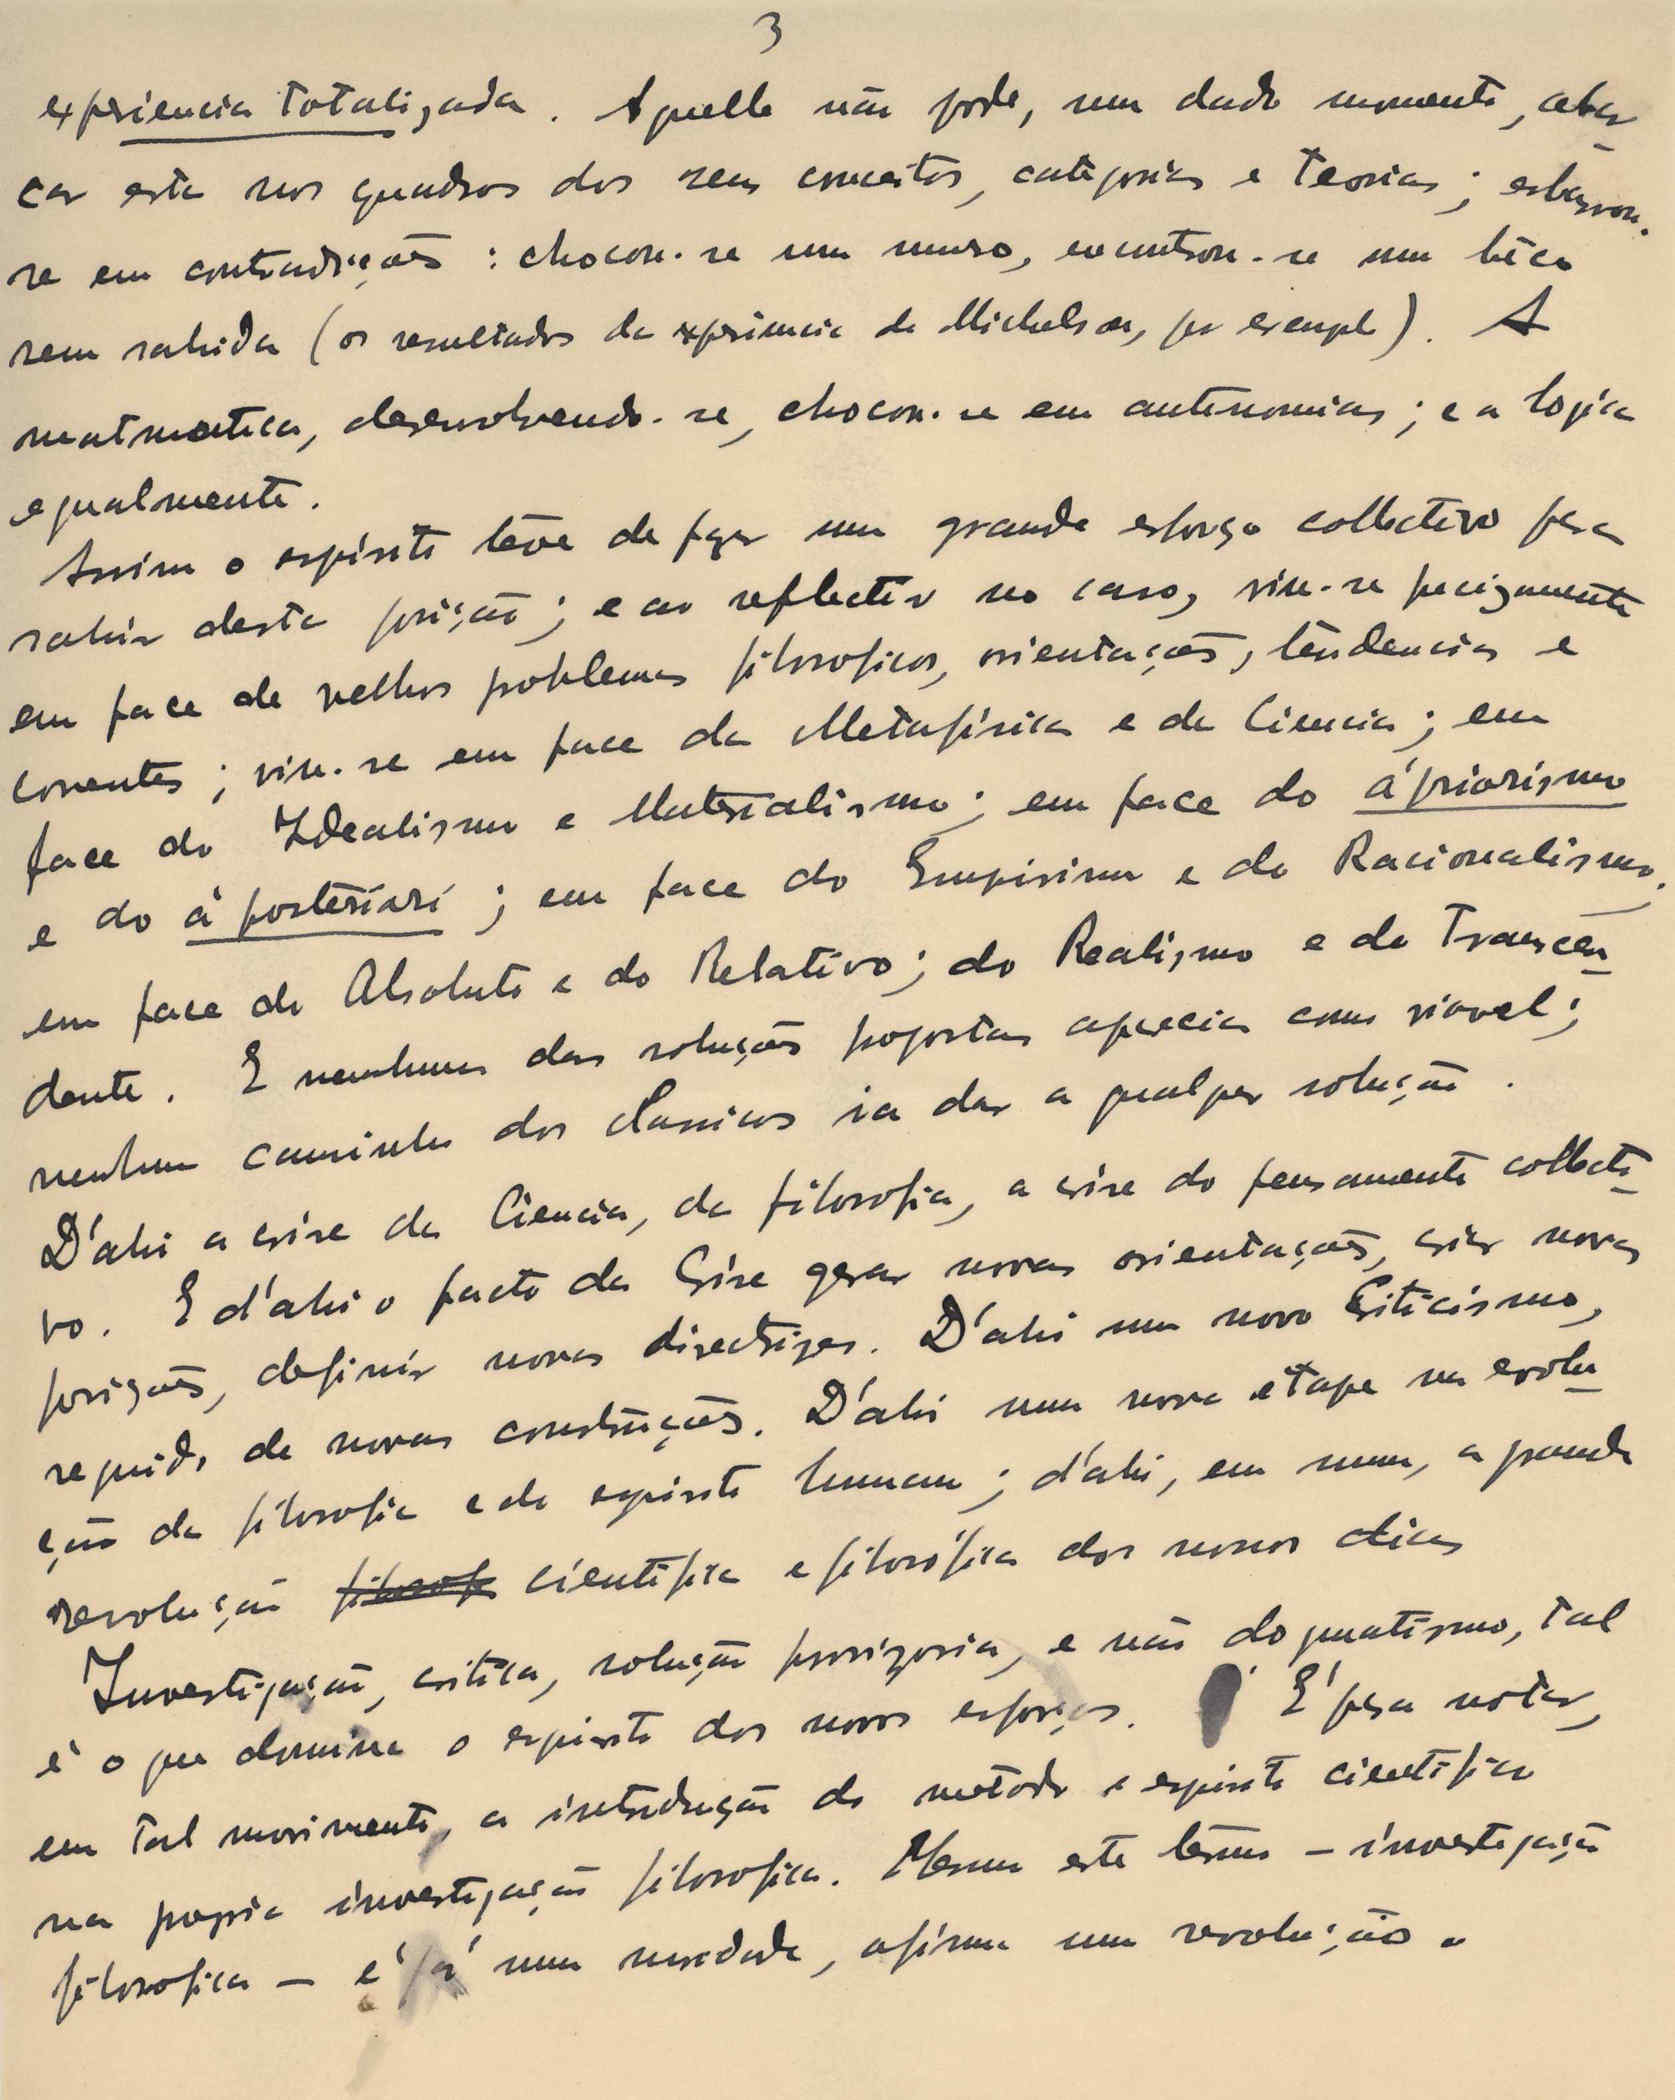 3
experiencia totalizada. Aquelle não pode, num dado momento, abar
car esta nos quadros dos seus conceitos, categorias e teorias; esbarrou-
se em contradições: chocou-se num muro, encontrou-se num bêco
sem sahida (os resultados da experiencia de Michelson, por exemplo). A
matematica, desenvolvendo-se, chocou-se em antinomias; e a logica
egualmente.
Assim o espirito têve de fazer um grande esforço collectivo para
sahir desta posição; e ao reflectir no caso, viu-se precizamente
em face de velhos problemas filosoficos, orientações, tendencias e
correntes; viu-se em face da Metafísica e da Ciencia; em
face do Idealismo e Materialismo; em face do á priorismo
e do á posteriori; em face do Empirismo e do Racionalismo,
em face do Absoluto e do Relativo; do Realismo e do Transcen
dente. E nenhuma das soluções propostas aparecia como viavel;
nenhum caminho dos classicos ia dar a qualquer solução.
D'ahi a crise da Ciencia, da filosofia, a crise do pensamento collecti
vo. E d'ahi o facto da Crise gerar novas orientações, criar novas
posições, definir novas directrizes. D'ahi um novo Criticismo,
seguido de novas construções. D'ahi uma nova etape na evolu
ção da filosofia e do espirito humano; d'ahi, em suma, a grande
revolução filosof cientifica e filosófica dos nossos dias
Investigação, critica, solução provizoria, e não dogmatismo, tal
é o que domina o espirito dos novos esforços. É para notar,
em tal movimento, a introdução do metodo e espirito cientifico
na propria investigação filosofica. Mesmo este termo – investigação
filosofica – é já uma novidade, afirma uma revolução.